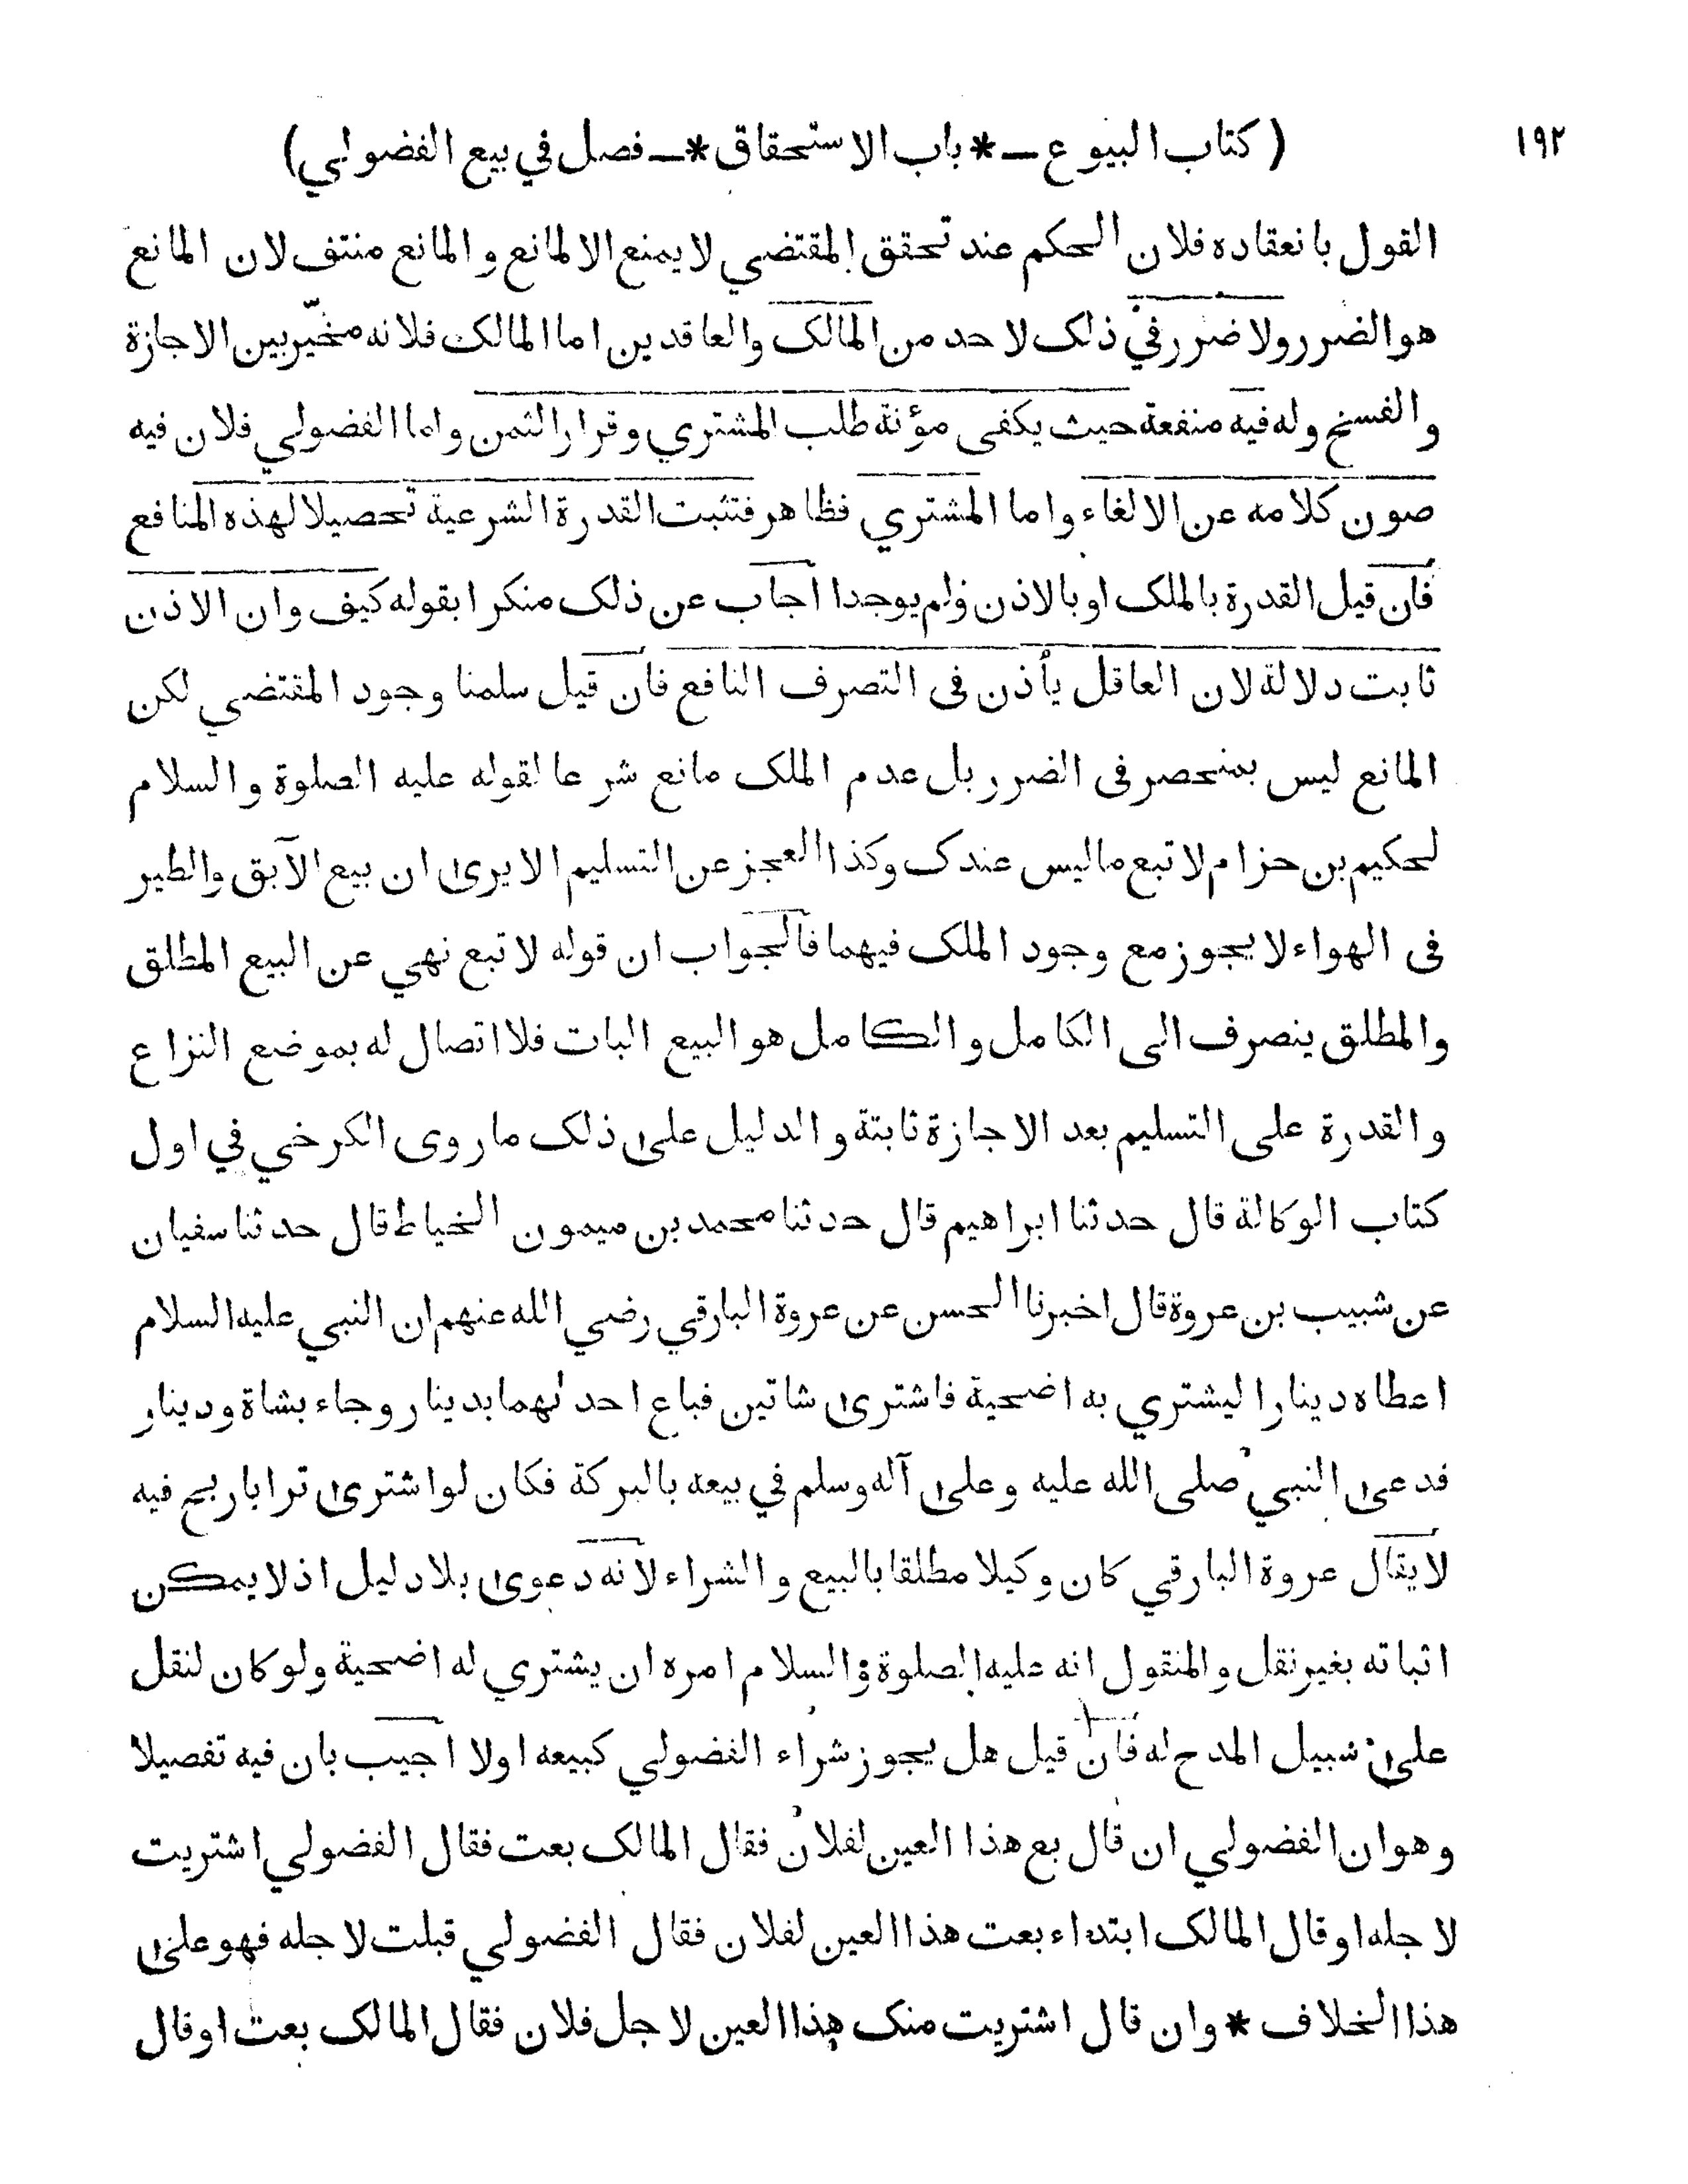 ١٩٢
( كتاب البيوع ـــ * باب الاستحقاق * ـــ فصل في بيع الفضولي )
القول بانعقاده فلان الحكم عند تحقق المقتضي لا يمنع الا لمانع و المانع منتف لان المانع
هو الضرر ولا ضرر في ذلك لاحد من المالك والعاقدين اما المالك فلانه مخيّر بين الاجازة
والفسخ وله فيه منفعة حيث يكفى مؤنة طلب المشتري وقرار الثمن واما الفضولي فلان فيه
صون كلامه عن الالغاء واما المشتري فظاهر فتثبت القدرة الشرعية تحصيلا لهذه المنافع
فان قيل القدرة بالملك او بالاذن ولم يوجدا اجاب عن ذلك منكرا بقوله كيف وان الاذن
ثابت دلالة لان العاقل يأذن فى التصرف النافع فان قيل سلمنا وجود المقتضي لكن
المانع ليس بمنحصر فى الضرر بل عدم الملك مانع شرعا لقوله عليه الصلوة والسلام
لحكيم بن حزام لا تبع ماليس عندك وكذا العجز عن التسليم الا يرى ان بيع الآبق والطير
فى الهواء لا يجوز مع وجود الملك فيهما فالجواب ان قوله لا تبع نهي عن البيع المطلق
والمطلق ينصرف الى الكامل والكامل هو البيع البات فلا اتصال له بموضع النزاع
و القدرة على التسليم بعد الاجازة ثابتة و الدليل على ذلك ما روى الكرخي في اول
كتاب الوكالة قال حدثنا ابراهيم قال حدثنا محمد بن ميمون الخياط قال حدثنا سفيان
عن شبيب بن عروة قال اخبرنا الحسن عن عروة البارقي رضي الله عنهم ان النبي عليه السلام
اعطاه دينارا ليشتري به اضحية فاشترى شاتين فباع احدلهما بدينار وجاء بشاة ودينار
فدعى النبي صلى الله عليه وعلى آله وسلم في بيعه بالبركة فكان لو اشترى ترابا ربح فيه
لا يقال عروة البارقي كان وكيلا مطلقا بالبيع و الشراء لانه دعوى بلا دليل اذ لا يمكن
اثباته بغير نقل والمنقول انه عليه الصلوة والسلام امره ان يشتري له اضحية ولو كان لنقل
على سبيل المدح له فان قيل هل يجوز شراء الفضولي كبيعه اولا اجيب بان فيه تفصيلا
وهو ان الفضولي ان قال بع هذا العين لفلان فقال المالك بعت فقال الفضولي اشتريت
لاجله او قال المالك ابتداء بعت هذا العين لفلان فقال الفضولي قبلت لاجله فهو على
هذا الخلاف * وان قال اشتريت منك هذا العين لاجل فلان فقال المالك بعت او قال